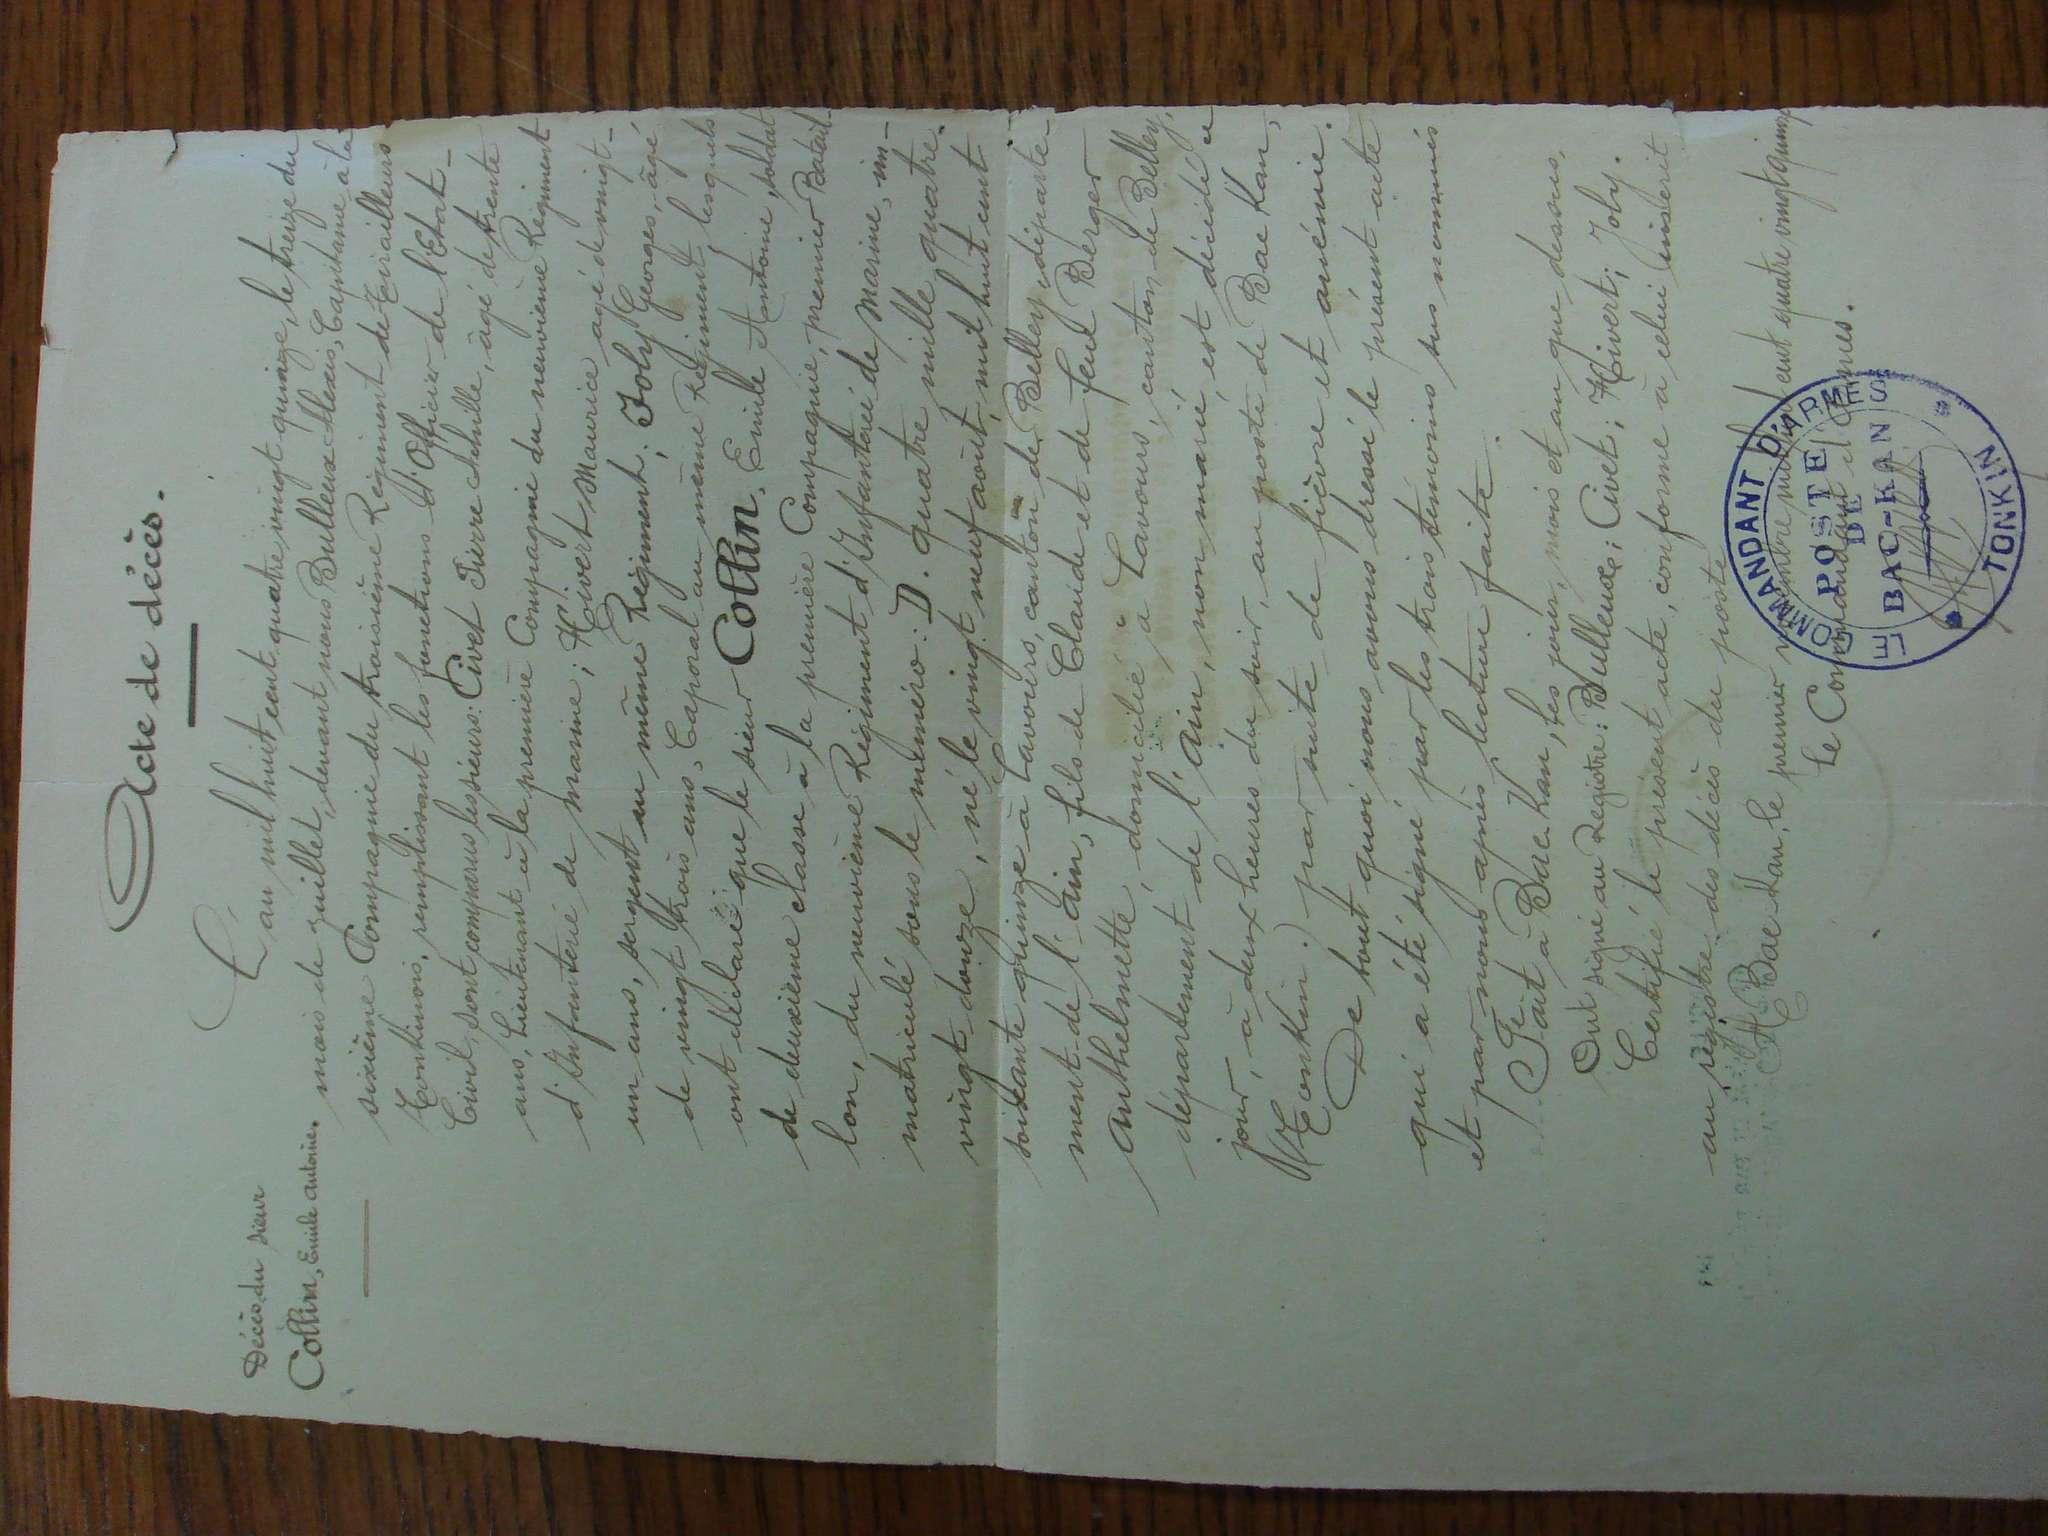 Acte de décès.
Décès du sieur
Collin, Emile Antoine.
L'an mil huit cent quatre vingt quinze, le treize du
mois de juillet, devant nous Bulleux Alexis, Capitaine à la
sixième Compagnie du troisième Régiment de Tirailleurs
Tonkinois, remplissant les fonctions d'Officier de l'Etat-
Civil, sont comparus les sieurs: Civet Pierre Achille, âgé de trente
ans, Lieutenant à la première Compagnie du neuvième Régiment
d'Infanterie de marine; Hivert Maurice agé de vingt-
un ans, sergent au même Régiment; Joly Georges, âgé
de vingt trois ans, Caporal au même Régiment, lesquels
ont déclaré que le sieur Collin, Emile Antoine, soldat
de deuxième classe à la première Compagnie, premier Batail-
lon, du neuvième Régiment d'Infanterie de Marine, im-
matriculé sous le numéro: D. quatre mille quatre
vingt douze, né le vingt neuf août, mil huit cent
soixante quinze à Lavours, canton de Belley, départe
ment de l'Ain, fils de Claude et de feue Berger
Anthelmette, domicilié à Lavours, canton de Belley,
département de l'Ain, non marié, est décédé ce
jour, à deux heures du soir, au poste de Bac Kan,
(Tonkin.) par suite de fièvre et anémie.
De tout quoi nous avons dressé le présent acte
qui a été signé par les trois témoins sus nommés
et par nous après lecture faite.
Fait à Bac Kan, les jour, mois et an que dessus,
Ont signé au Registre: Bulleux; Civet; Hivert; Joly.
Certifié le présent acte, conforme à celui inscrit
au registre des décès du poste
A Bac Kan, le premier novembre mil huit cent quatre vingt quinze
Le Commandant d'Armes.
LE COMMANDANT D'ARMES
POSTE
DE
BAC-KAN
TONKIN